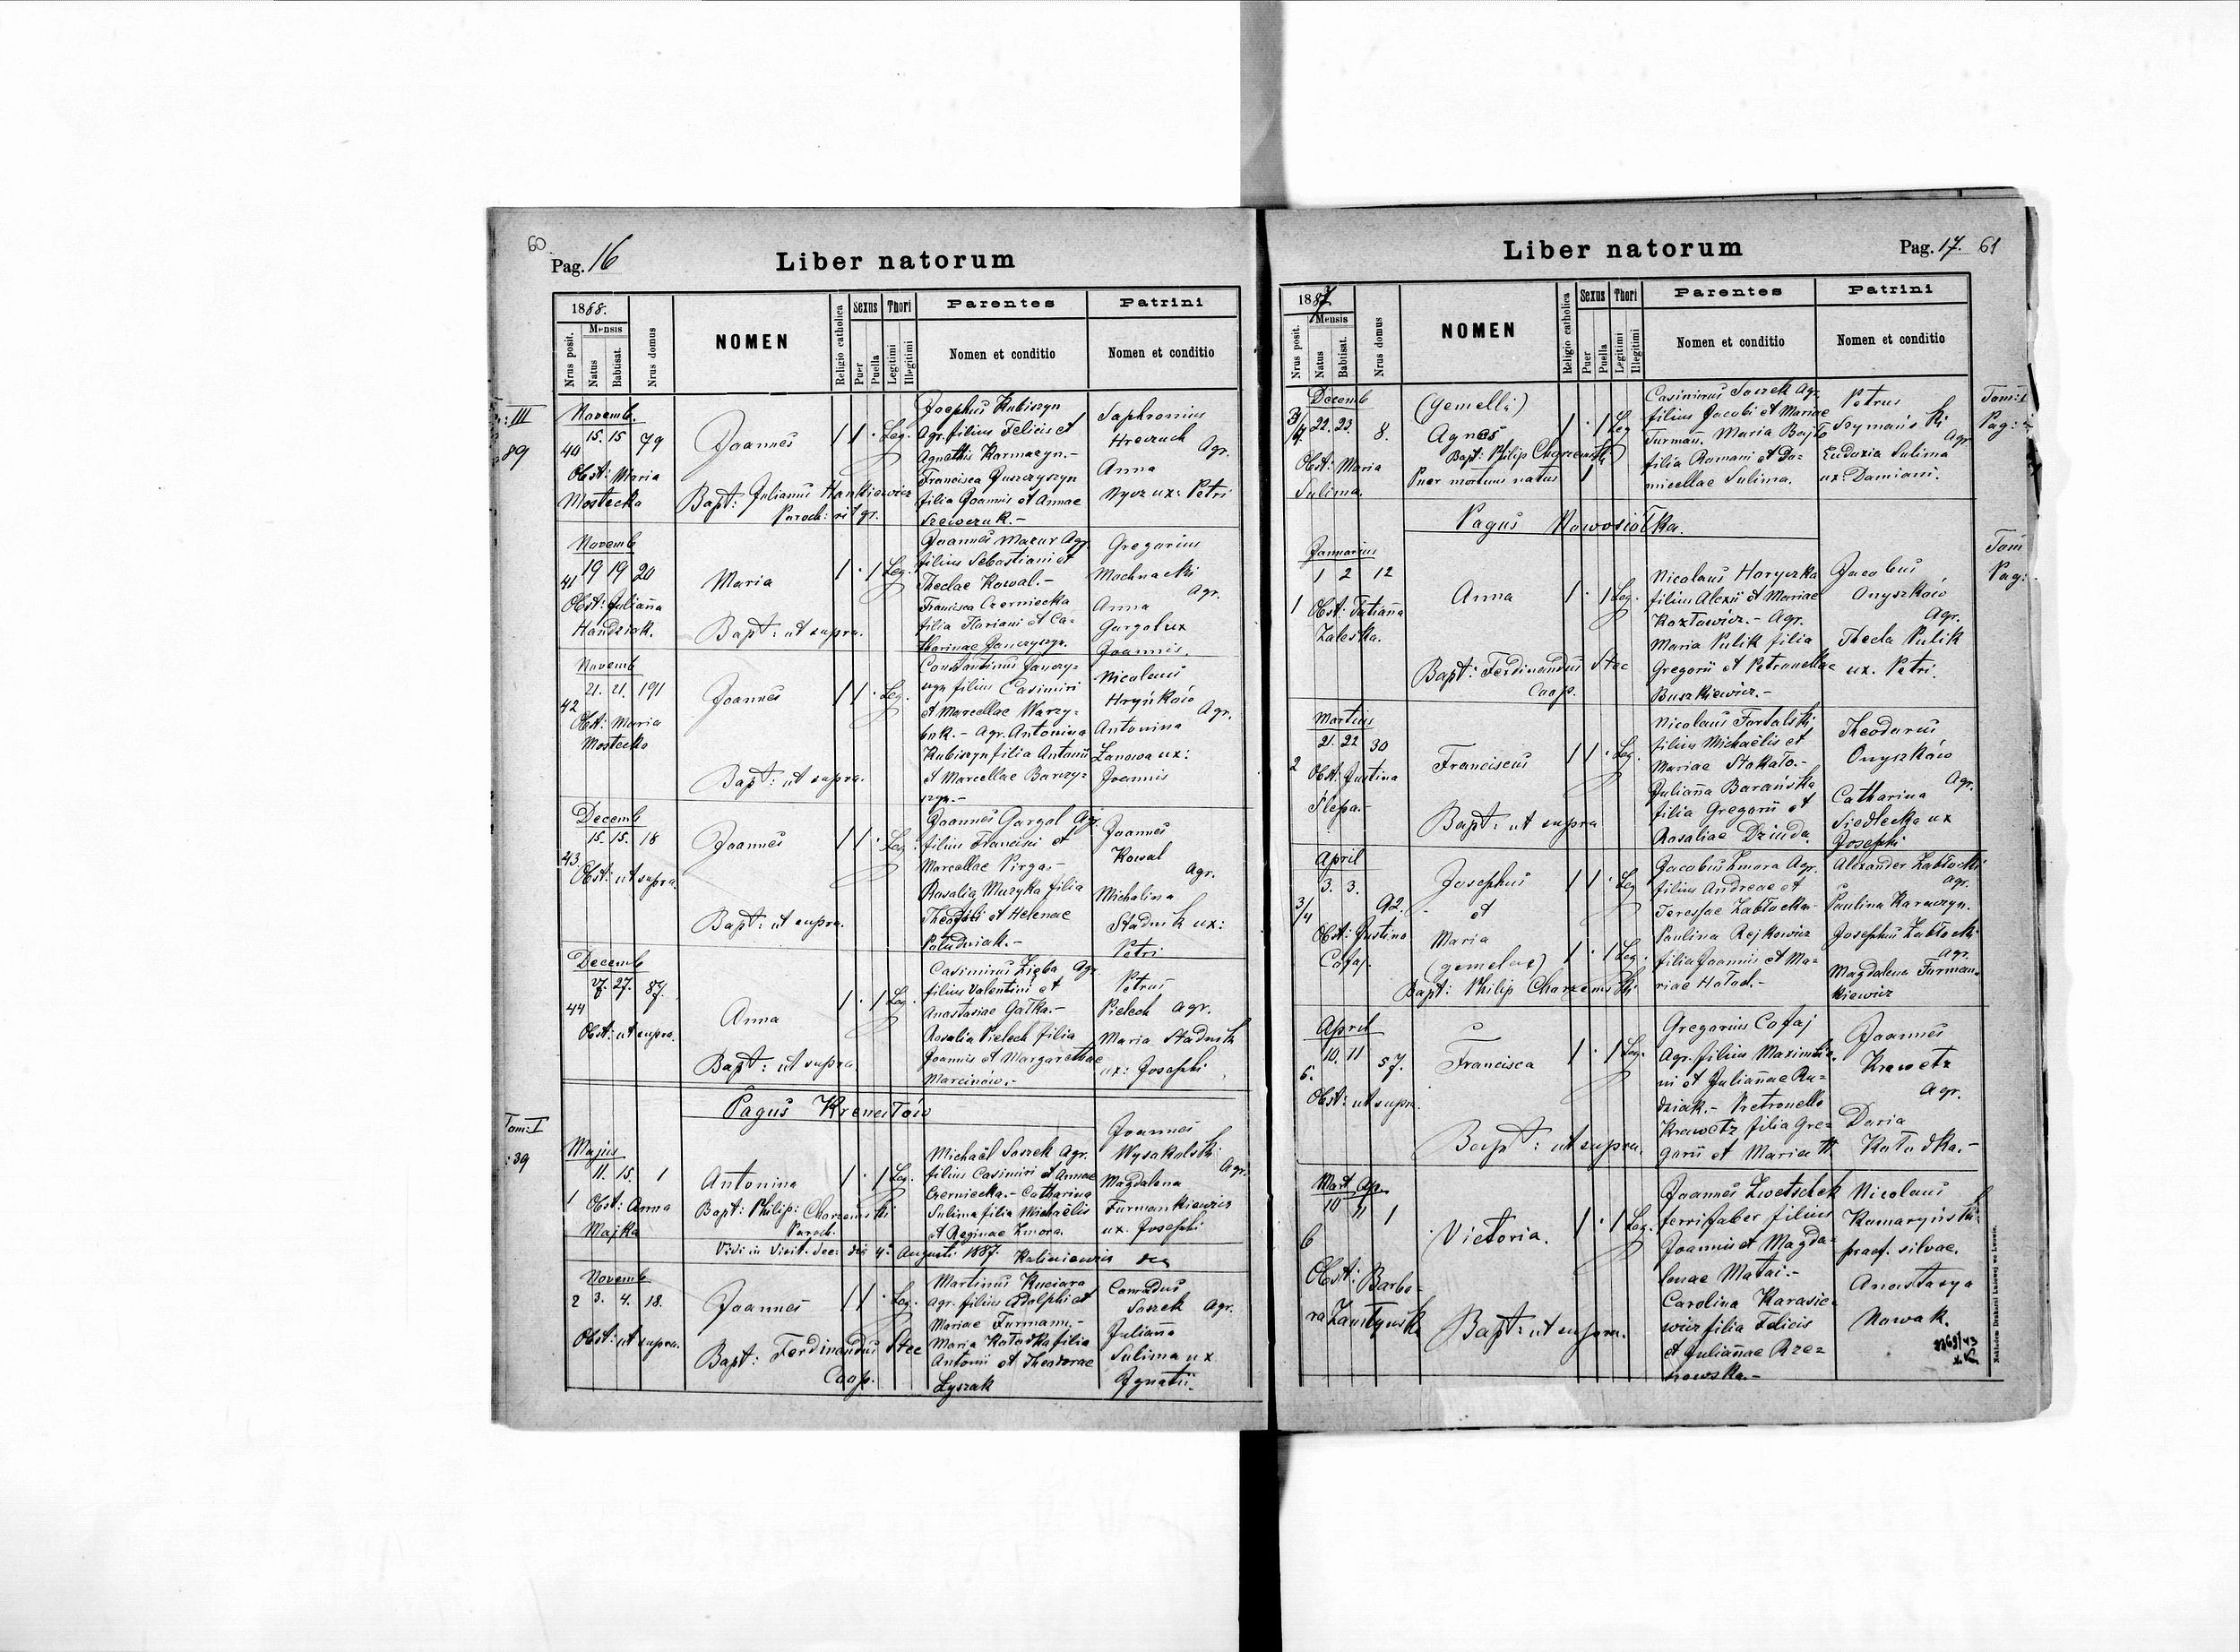 60
Pag. 16
Liber natorum
1888.
Nrus posit.
Mensis
Natus
Babtisat.
Nrus domus
NOMEN
Religio catholica
Sexus
Puer
Puella
Thori
Legitimi
Illegitimi
Parentes
Nomen et conditio
Patrini
Nomen et conditio
: III
89
Novemb.
40 15. 15 79
Obst: Maria
Mostecka
Joannes
1 1 . Leg.
Bapt: Julianus Hankiewicz
Paroch: rit gr.
Josephus Kubiszyn
Agr. filius Felicis et
Agnethis Karmazyn.-
Francisca Juszczyszyn
filia Joannis et Annae
Szewczuk.-
Saphronius
Hreczuch
Agr.
Anna
Nycz ux: Petri
Novemb
41 19 19 20
Obst: Julianna
Handziak.
Maria
1 . 1 Leg.
Bapt: ut supra.
Joannes Mazur Agr
filius Sebastiani et
Theclae Kowal.-
Francisca Czerniecka
filia Floriani et Ca-
tharinae Janczyszyn.
Gregorius
Mochnacki
Agr.
Anna
Gargol ux
Joannis.
Novemb
42 21. 21. 191
Obst: Maria
Mostecka
Joannes
1 1 . Leg.
Bapt: ut supra.
Constantinus Janczy-
szyn filius Casimiri
et Marcellae Warzy-
bok.- Agr. Antonina
Kubiszyn filia Antonii
et Marcellae Barczy-
szyn.-
Nicolaus
Hryńków
Agr.
Antonina
Łanowa ux:
Joannis
Decemb
43. 15. 15. 18
Obst: ut supra.
Joannes
1 1 . Leg.
Bapt: ut supra.
Joannes Gargol Agr.
filius Francisci et
Marcellae Pirga.-
Rosalia Muzyka filia
Theofili et Helenae
Południak.-
Joannes
Kowal
Agr.
Michalina
Stadnik ux:
Petri
Decemb
44 27. 27. 87.
Obst: ut supra.
Anna
1 . 1 Leg.
Bapt: ut supra.
Casimirus Zięba Agr
filius Valentini et
Anastasiae Gałka.-
Rosalia Pielech filia
Joannis et Margarethae
Marcinów.-
Petrus
Pielech Agr.
Maria Stadnik
ux: Josephi
Pagus Krenciłów
Tom: I
: 39
Majus
1 11. 15. 1
Obst: Anna
Majka
Antonina
1 . 1 Leg.
Bapt: Philip: Charzemski
Paroch.
Michaël Soszek Agr.
filius Casimiri et Annae
Czerniecka.- Catharina
Sulima filia Michaëlis
et Reginae Zmora.
Joannes
Wysakolski
Agr.
Magdalena
Furmankiewicz
ux. Josephi
Vidi in visit. dec: die 4a Augusti 1887. Kaliniewicz
Novemb
2 3. 4. 18.
Obst: ut supra.
Joannes
1 1 . Leg.
Bapt: Ferdinandus Stec
Coop.
Martinus Kuciara
Agr. filius Adolphi et
Mariae Furmann.-
Maria Kaładka filia
Antonii et Theodorae
Łyszak
Conradus
Soszek Agr.
Julianna
Sulima ux
Ignatii.
Liber natorum
Pag. 17. 61
1887
Nrus posit.
Mensis
Natus
Babtisat.
Nrus domus
NOMEN
Religio catholica
Sexus
Puer
Puella
Thori
Legitimi
Illegitimi
Parentes
Nomen et conditio
Patrini
Nomen et conditio
Decemb
3/4 22. 23. 8.
Obst: Maria
Sulima.
(Gemelli)
Agnes
1 . 1 Leg
Bapt: Philip Charzemski
Puer mortuus natus 1
Casimirus Soszek Agr
filius Jacobi et Mariae
Furmann. Maria Bojko
filia Romani et Do-
micellae Sulima.
Petrus
Szymański
Agr
Eudoxia Sulima
ux: Damiani.
Tom: I
Pag:
Pagus Nowosiółka.
Januarius
1 1 2 12
Obst: Tatianna
Zaleska.
Anna
1 . 1 Leg.
Bapt: Ferdinandus Stec
Coop.
Nicolaus Horyczka
filius Alexii et Mariae
Kozłowicz.- Agr.
Maria Pulik filia
Gregorii et Petronellae
Buszkiewicz.-
Jacobus
Onyszków
Agr.
Thecla Pulik
ux. Petri.
Tom
Pag:
Martius
2 21. 22 30
Obst: Justina
Ślepa.-
Franciscus
1 1 . Leg.
Bapt: ut supra
Nicolaus Fortalski
filius Michaëlis et
Mariae Stokało.-
Julianna Barańska
filia Gregorii et
Rosaliae Dziuda.
Theodorus
Onyszków
Agr.
Catharina
Siedlecka ux
Josephi
April
3/4 3. 3. 92.
Obst: Justina
Cofaj.
Josephus
1 1 . Leg
et
Maria
1 . 1 Leg.
(gemelae)
Bapt: Philip Charzemski
Jacobus Zmora Agr.
filius Andreae et
Teressae Zabłocka-
Paulina Rejkowicz
filia Joannis et Ma-
riae Hołod.-
Alexander Zabłocki
Agr.
Paulina Karaczyn.
Josephus Zabłocki
Agr.
Magdalena Furman-
kiewicz
April
5. 10. 11 57.
Obst: ut supra.
Francisca
1 . 1 Leg.
Bapt: ut supra.
Gregorius Cofaj
Agr. filius Maximilia-
ni et Juliannae Ru-
dziak.- Petronella
Krawetz filia Gre-
gorii et Maria
Joannes
Krawetz
Agr.
Daria
Kaładka.-
Mart Ap.
6 10 11 1
Obst: Barba-
ra Zamłyńska
Victoria.
1 . 1 Leg.
Bapt: ut supra.
Joannes Zwetschek
ferrifaber filius
Joannis et Magda-
lenae Matai.-
Carolina Karasie-
wicz filia Felicis
et Juliannae Rze-
nowska.-
Nicolaus
Kamaryński
praef. silvae.
Anastasya
Nowak.
Nakładem Drukarni Ludowej we Lwowie.